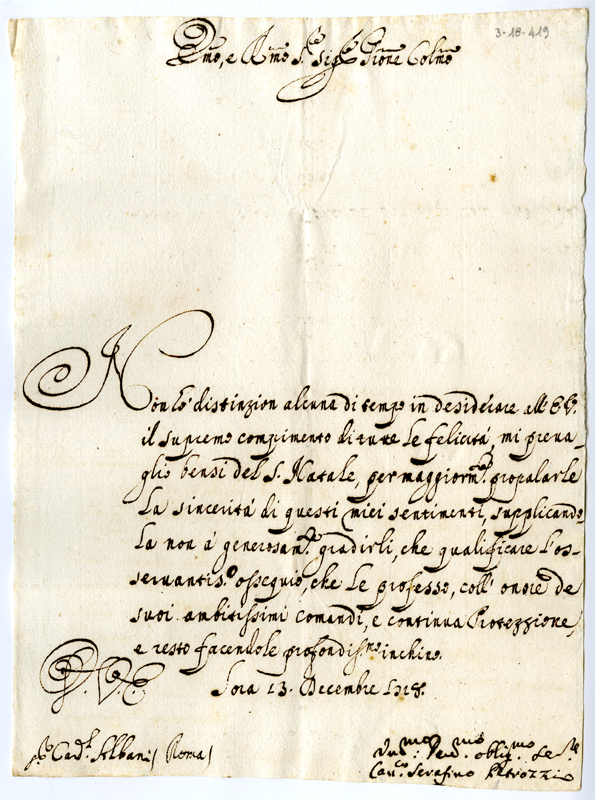 3-18-419
Emo, e Rmo Sre Sigr Prone Colmo
Non hò distinzion alcuna di tempo in desiderare all' EV.
il supremo compimento di tutte le felicità, mi preva-
glio bensì del S. Natale, per maggiormte propalarle
la sincerità di questi miei sentimenti, supplicando-
la non á generosamte gradirli, che qualificare l'os-
servantis.o ossequio, che le professo, coll' onore de
suoi ambitissimi comandi, e continua Protezzione,
e resto facendole profondis.mo inchino.
D.V.E
Sora 13. Decembre 1718.
Sr Cadl Albani (Roma)
Vmo: Devmo obligmo Sere
Canco Serafino Petrozzi